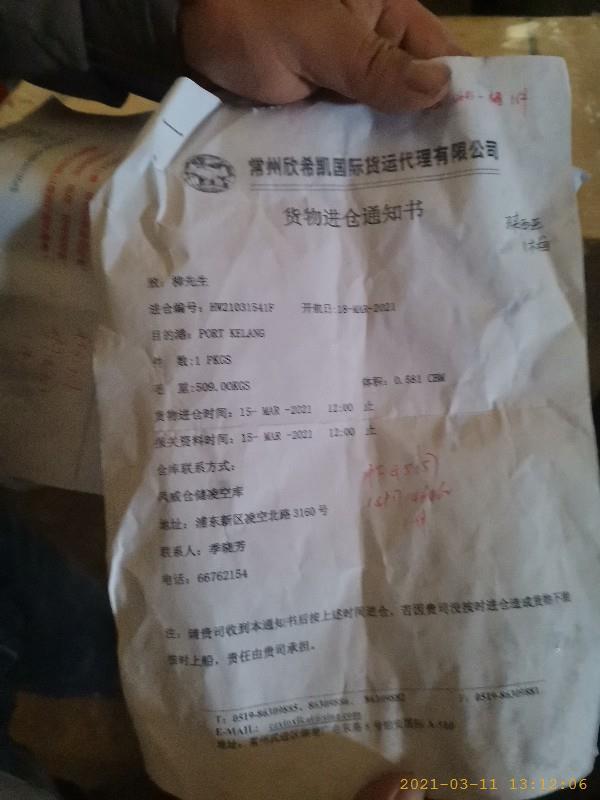 常州欣希凯国际货运代理有限公司
货物进仓通知书
致：柳先生
进仓编号：HW21031541F 开航日:18-MAR-2021
目的港：PORT KELANG
件 数:1 PKGS
毛 重:509.00KGS 体积：0.581 CBM
货物进仓时间：15- MAR -2021 12:00 止
报关资料时间：15- MAR -2021 12:00 止
仓库联系方式：
风威仓储凌空库
地址：浦东新区凌空北路3160号
联系人：季晓芳
电话：66762154
注：请贵司收到本通知书后按上述时间进仓，否因贵司没按时进仓造成货物不能
按时上船，责任由贵司承担。
T：0519-86309885、86309886、 86309882 F：0519-86309881
E-MAIL：
地址：常州武进区 A-
2021-03-11 13:12:06